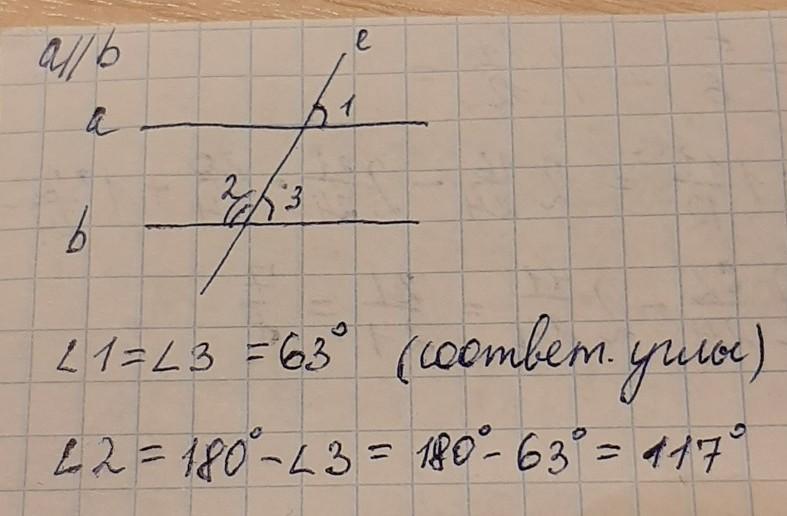 a//b
c
a
1
2
3
b
∠1=∠3 =63° (соответ. углы)
∠2 = 180°-∠3 = 180°- 63° = 117°